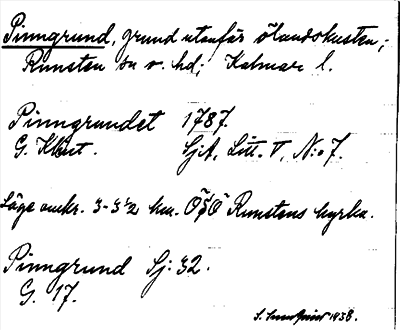 Pinngrund, grund utanför ölandskusten;
Runsten sn o. hd; Kalmar l.
Pinngrundet 1787.
G. Klint. SjA, Litt. V, N:o 7.
Läge omkr. 3-3½ km. ÖSÖ Runstens kyrka.
Pinngrund Sj: 32.
G. 17.
S. 1938.